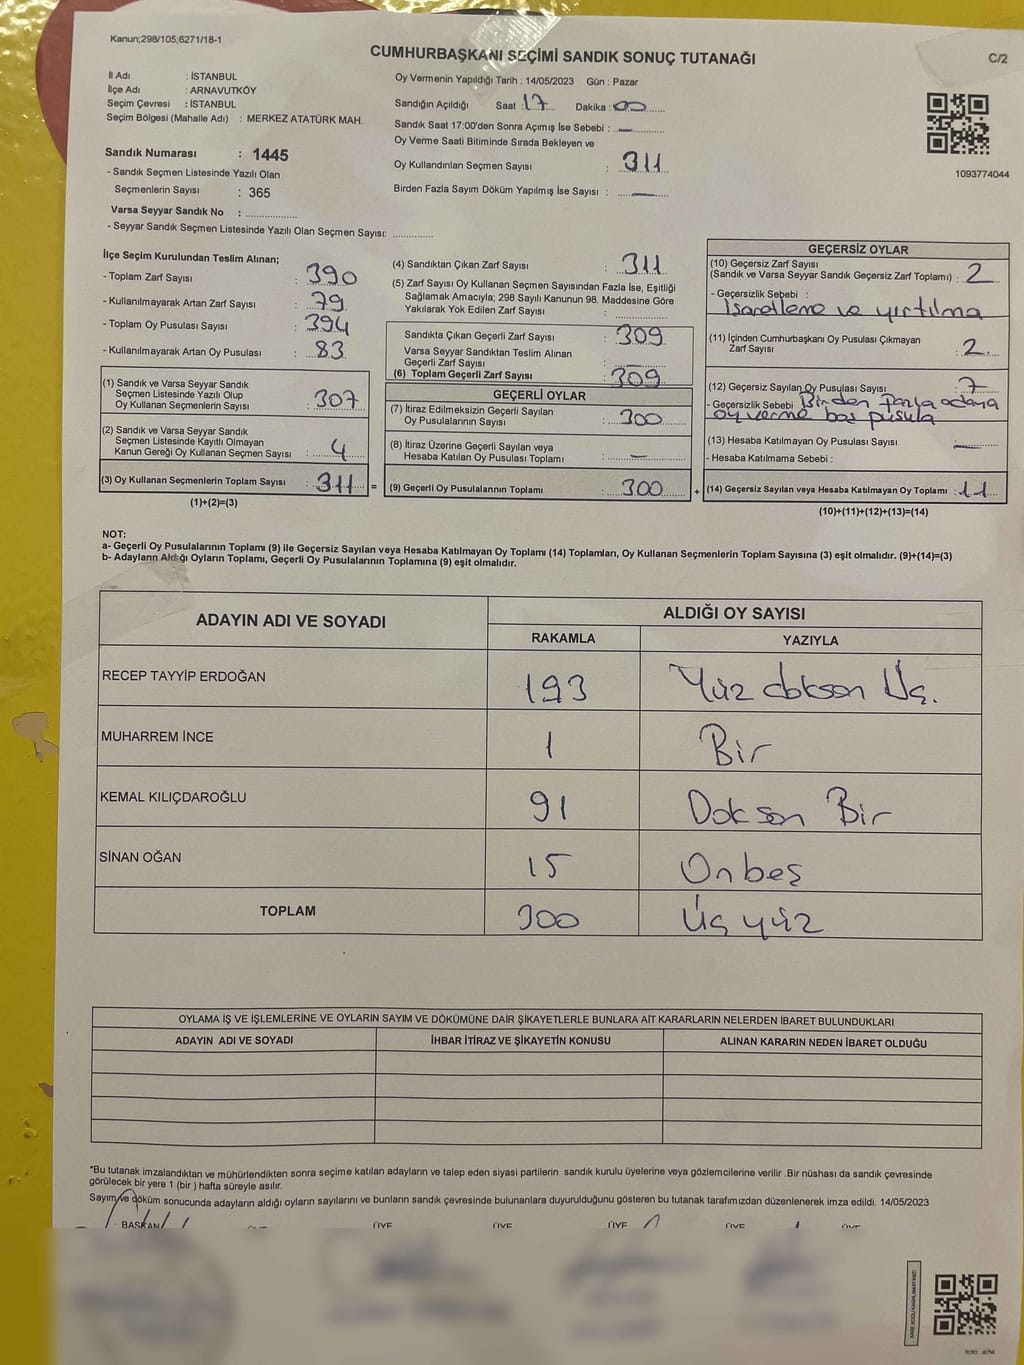 Kanun;298/105;6271/18-1
CUMHURBAŞKANI SEÇİMİ SANDIK SONUÇ TUTANAĞI
C/2
İl Adı : İSTANBUL
İlçe Adı : ARNAVUTKÖY
Seçim Çevresi : İSTANBUL
Seçim Bölgesi (Mahalle Adı) : MERKEZ ATATÜRK MAH.
Sandık Numarası : 1445
- Sandık Seçmen Listesinde Yazılı Olan
Seçmenlerin Sayısı : 365
Varsa Seyyar Sandık No : ................
- Seyyar Sandık Seçmen Listesinde Yazılı Olan Seçmen Sayısı: .............
Oy Vermenin Yapıldığı Tarih : 14/05/2023 Gün : Pazar
Sandığın Açıldığı Saat : 17 Dakika : 00
Sandık Saat 17:00'den Sonra Açımış İse Sebebi : —
Oy Verme Saati Bitiminde Sırada Bekleyen ve
Oy Kullandırılan Seçmen Sayısı : 311
Birden Fazla Sayım Döküm Yapılmış İse Sayısı : —
1093774044
İlçe Seçim Kurulundan Teslim Alınan;
- Toplam Zarf Sayısı : 390
- Kullanılmayarak Artan Zarf Sayısı : 79
- Toplam Oy Pusulası Sayısı : 394
- Kullanılmayarak Artan Oy Pusulası : 83
(1) Sandık ve Varsa Seyyar Sandık
Seçmen Listesinde Yazılı Olup
Oy Kullanan Seçmenlerin Sayısı : 307
(2) Sandık ve Varsa Seyyar Sandık
Seçmen Listesinde Kayıtlı Olmayan
Kanun Gereği Oy Kullanan Seçmen Sayısı : 4
(3) Oy Kullanan Seçmenlerin Toplam Sayısı : 311 =
(1)+(2)=(3)
(4) Sandıktan Çıkan Zarf Sayısı : 311
(5) Zarf Sayısı Oy Kullanan Seçmen Sayısından Fazla İse, Eşitliği
Sağlamak Amacıyla; 298 Sayılı Kanunun 98. Maddesine Göre
Yakılarak Yok Edilen Zarf Sayısı : ................
Sandıkta Çıkan Geçerli Zarf Sayısı : 309
Varsa Seyyar Sandıktan Teslim Alınan
Geçerli Zarf Sayısı
(6) Toplam Geçerli Zarf Sayısı : 309
GEÇERLİ OYLAR
(7) İtiraz Edilmeksizin Geçerli Sayılan
Oy Pusulalarının Sayısı : 300
(8) İtiraz Üzerine Geçerli Sayılan veya
Hesaba Katılan Oy Pusulası Toplamı : —
(9) Geçerli Oy Pusulalarının Toplamı : 300 +
GEÇERSİZ OYLAR
(10) Geçersiz Zarf Sayısı
(Sandık ve Varsa Seyyar Sandık Geçersiz Zarf Toplamı) : 2
- Geçersizlik Sebebi :
İşaretleme ve yırtılma
(11) İçinden Cumhurbaşkanı Oy Pusulası Çıkmayan
Zarf Sayısı : 2
(12) Geçersiz Sayılan Oy Pusulası Sayısı : 7
- Geçersizlik Sebebi Birden fazla adaya
oy verme boş pusula
(13) Hesaba Katılmayan Oy Pusulası Sayısı : —
- Hesaba Katılmama Sebebi :
(14) Geçersiz Sayılan veya Hesaba Katılmayan Oy Toplamı : 11
(10)+(11)+(12)+(13)=(14)
NOT:
a- Geçerli Oy Pusulalarının Toplamı (9) ile Geçersiz Sayılan veya Hesaba Katılmayan Oy Toplamı (14) Toplamları, Oy Kullanan Seçmenlerin Toplam Sayısına (3) eşit olmalıdır. (9)+(14)=(3)
b- Adayların Aldığı Oyların Toplamı, Geçerli Oy Pusulalarının Toplamına (9) eşit olmalıdır.
ADAYIN ADI VE SOYADI
ALDIĞI OY SAYISI
RAKAMLA YAZIYLA
RECEP TAYYİP ERDOĞAN 193 Yüz doksan Üç.
MUHARREM İNCE 1 Bir
KEMAL KILIÇDAROĞLU 91 Doksan Bir
SİNAN OĞAN 15 Onbeş
TOPLAM 300 Üç yüz
OYLAMA İŞ VE İŞLEMLERİNE VE OYLARIN SAYIM VE DÖKÜMÜNE DAİR ŞİKAYETLERLE BUNLARA AİT KARARLARIN NELERDEN İBARET BULUNDUKLARI
ADAYIN ADI VE SOYADI İHBAR İTİRAZ VE ŞİKAYETİN KONUSU ALINAN KARARIN NEDEN İBARET OLDUĞU
*Bu tutanak imzalandıktan ve mühürlendikten sonra seçime katılan adayların ve talep eden siyasi partilerin sandık kurulu üyelerine veya gözlemcilerine verilir .Bir nüshası da sandık çevresinde
görülecek bir yere 1 (bir) hafta süreyle asılır.
Sayım ve döküm sonucunda adayların aldığı oyların sayılarını ve bunların sandık çevresinde bulunanlara duyurulduğunu gösteren bu tutanak tarafımızdan düzenlenerek imza edildi. 14/05/2023
BAŞKAN ÜYE ÜYE ÜYE ÜYE ÜYE